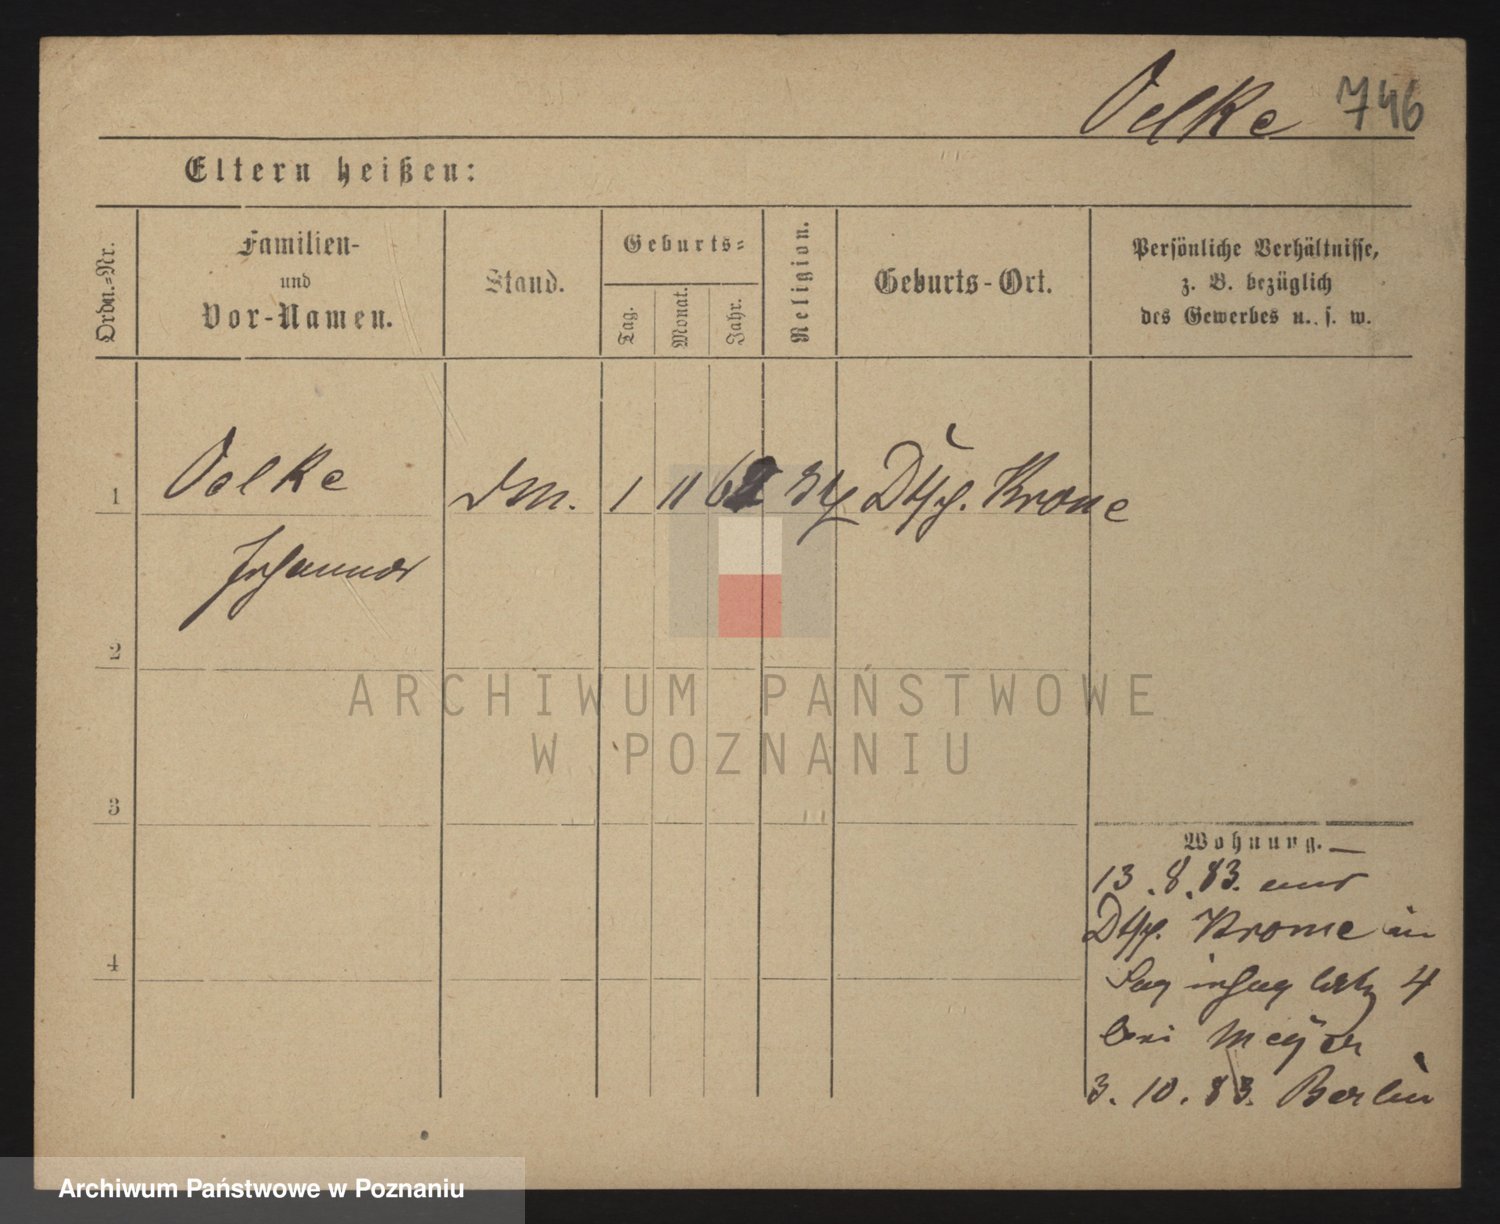 Oelke 746
Eltern heißen:
Ordn.-Nr.
Familien-
und
Vor-Namen.
Stand.
Geburts-
Tag.
Monat.
Jahr.
Religion.
Geburts-Ort.
Persönliche Verhältnisse,
z. B. bezüglich
des Gewerbes u. s. w.
1 Oelke DM. 1 11 62 Dtsch. Krone
Johannes
2
ARCHIWUM PAŃSTWOWE
W POZNANIU
3
Wohnung.
13.8.83. aus
Dtsch. Krone in
4
4
bei Meyer
3.10.83. Berlin
Archiwum Państwowe w Poznaniu